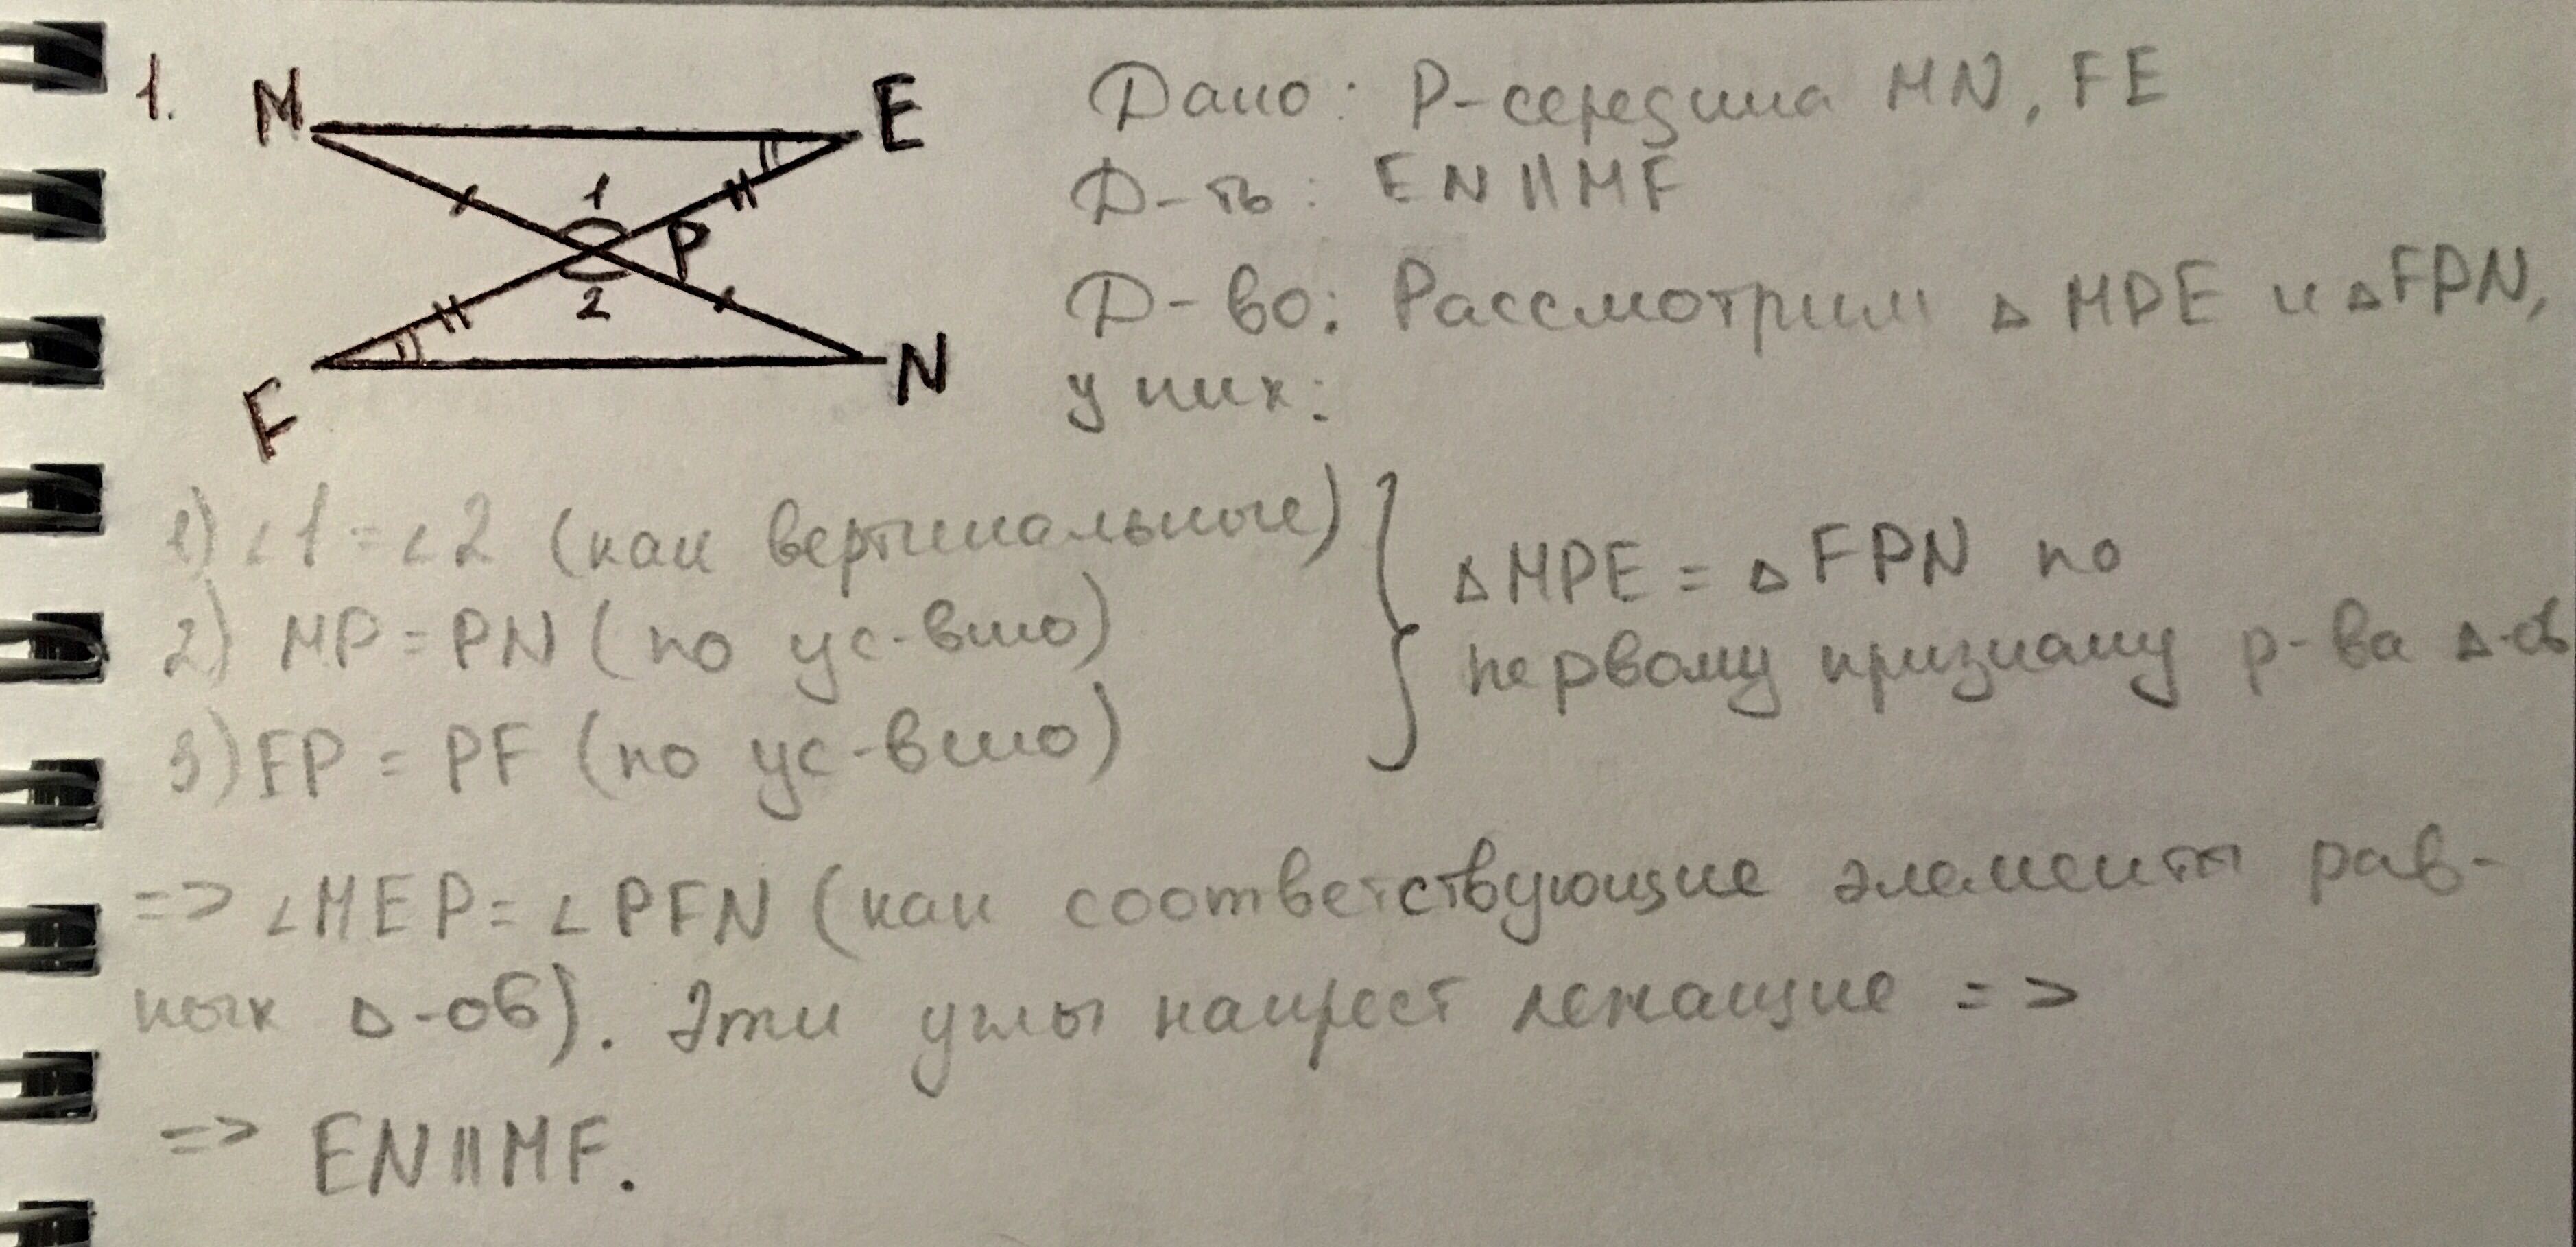 1.
M E
1
P
2
F N
Дано: P-середина MN, FE
Д-ть: EN||MF
Д-во: Рассмотрим △ MPE и △FPN,
у них:
1) ∠1 = ∠2 (как вертикальные)
2) MP = PN (по ус-вию)
3) FP = PF (по ус-вию)
△MPE = △FPN по
первому признаку р-ва △-ов
=> ∠MEP = ∠PFN (как соответствующие элементы рав-
ных △-ов). Эти углы накрест лежащие =>
=> EN||MF.